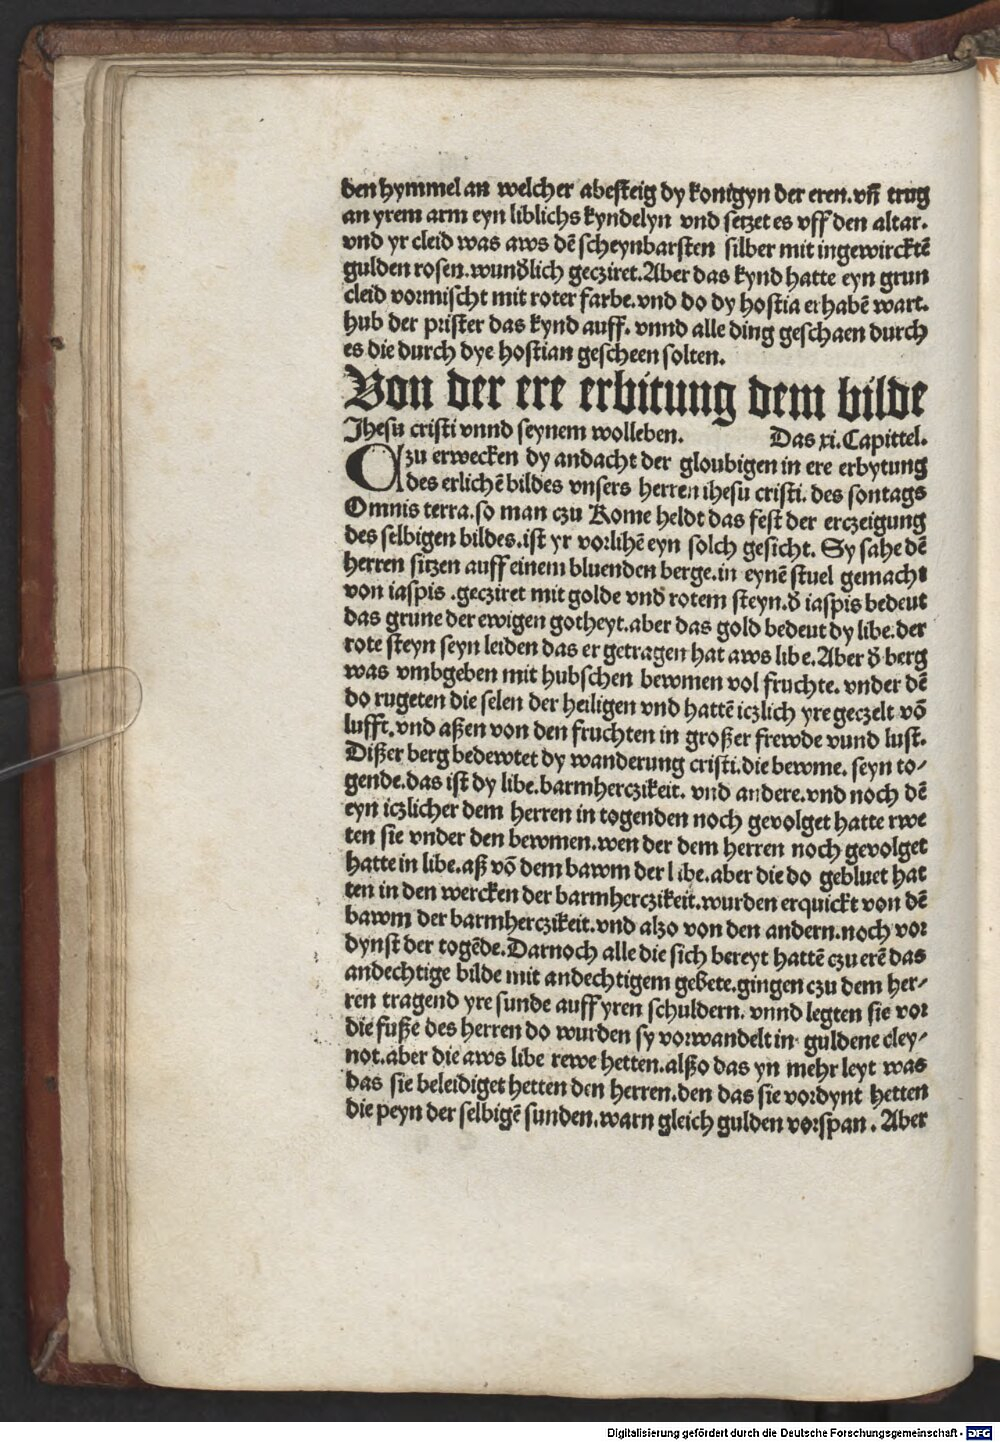 den hymmel an welcher abesteig dy konigyn der eren. vñ trug
an yrem arm eyn liblichs kyndelyn vnd setzet es vff den altar.
vnd yr cleid was aws dē scheynbarsten silber mit ingewircktē
gulden rosen. wunďlich gecziret. Aber das kynd hatte eyn grun
cleid vormischt mit roter farbe. vnd do dy hostia erhabē wart.
hub der prister das kynd auff. vnnd alle ding geschaen durch
es die durch dye hostian gescheen solten.
Von der ere erbitung dem bilde
Jhesu cristi vnnd seynem wolleben. Das xi. Capittel.
Czu erwecken dy andacht der gloubigen in ere erbytung
des erlichē bildes vnsers herren ihesu cristi. des sontags
Omnis terra. so man czu Rome heldt das fest der erczeigung
des selbigen bildes. ist yr vorlihē eyn solch gesicht. Sy sahe dē
herren sitzen auff einem bluenden berge. in eynē stuel gemacht
von iaspis . gecziret mit golde vnd rotem steyn. ď iaspis bedeut
das grune der ewigen gotheyt. aber das gold bedeut dy libe. der
rote steyn seyn leiden das er getragen hat aws libe. Aber ď berg
was vmbgeben mit hubschen bewmen vol fruchte. vnder dē
do rugeten die selen der heiligen vnd hattē iczlich yre geczelt vō
lufft. vnd aßen von den fruchten in großer frewde vund lust.
Dißer berg bedewtet dy wanderung cristi. die bewme. seyn to⸗
gende. das ist dy libe. barmherczikeit. vnd andere. vnd noch dē
eyn iczlicher dem herren in togenden noch gevolget hatte rwe
ten sie vnder den bewmen. wen der dem herren noch gevolget
hatte in libe. aß vō dem bawm der libe. aber die do gebluet hat
ten in den wercken der barmherczikeit. wurden erquickt von dē
bawm der barmherczikeit. vnd alzo von den andern. noch vor
dynst der togēde. Darnoch alle die sich bereyt hattē czu erē das
andechtige bilde mit andechtigem gebete. gingen czu dem her⸗
ren tragend yre sunde auff yren schuldern. vnnd legten sie vor
die fuße des herren do wurden sy vorwandelt in guldene cley⸗
not. aber die aws libe rewe hetten. alßo das yn mehr leyt was
das sie beleidiget hetten den herren. den das sie vordynt hetten
die peyn der selbigē sunden. warn gleich gulden vorspan . Aber
Digitalisierung gefördert durch die Deutsche Forschungsgemeinschaft - DFG